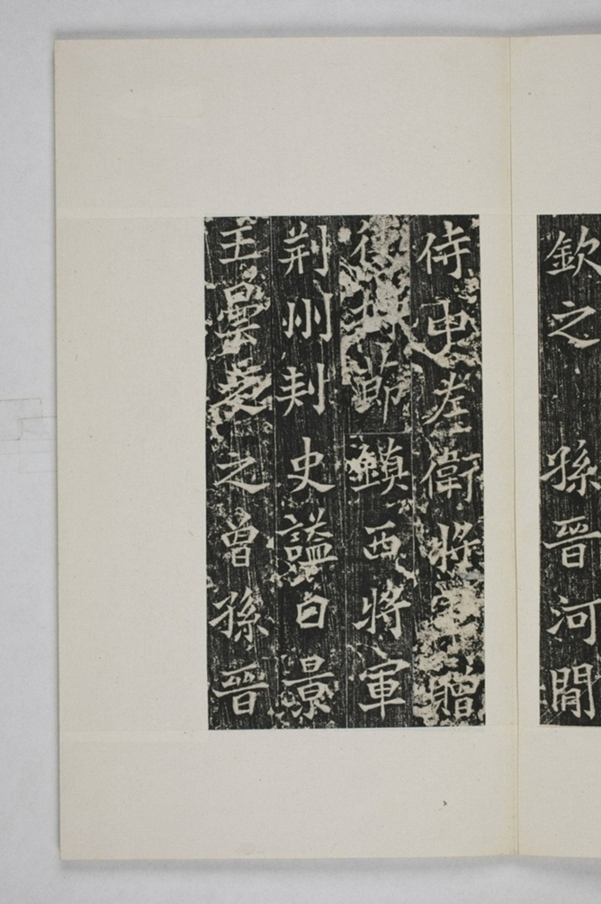 欽之孫晉河間
侍中左衛將軍贈
持節鎮西將軍
荊州刺史謚曰景
王曇之曾孫晉